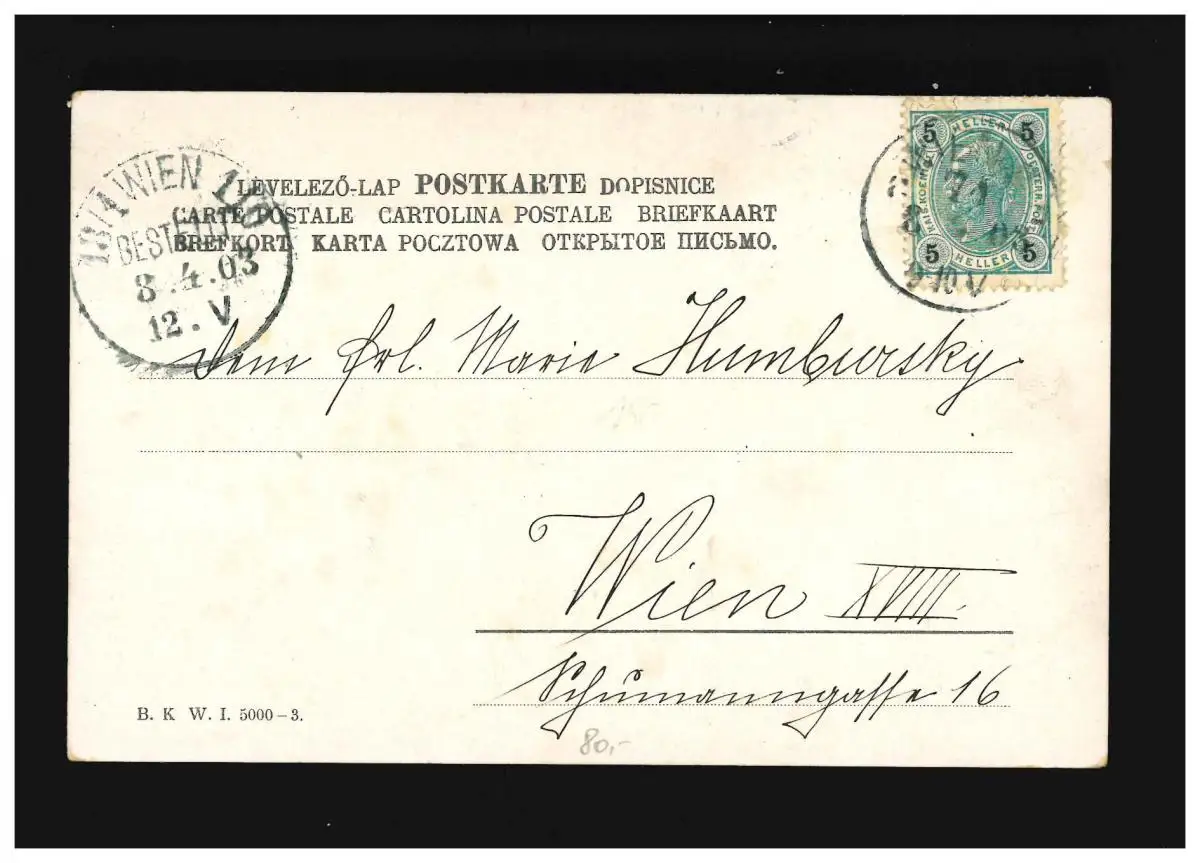 LEVELEZŐ-LAP POSTKARTE DOPISNICE
CARTE POSTALE CARTOLINA POSTALE BRIEFKAART
BREFKORT. KARTA POCZTOWA ОТКРЫТОЕ ПИСЬМО.
18/1 WIEN
BESTELLT
8.4.03
12.V
5 HELLER 5
5 HELLER 5
10 V
Dem Frl. Marie Humbursky
Wien XVIII.
Schumanngasse 16
B. K W. I. 5000-3.
80,-